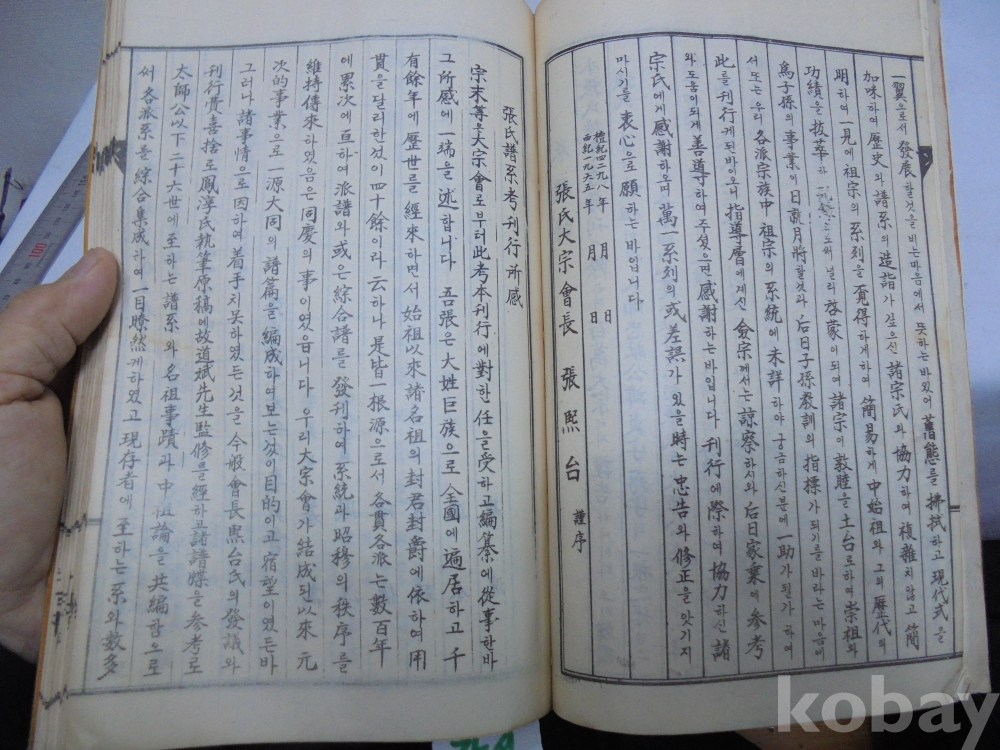 一翼으로서 發展할것을 비는마음에서 뜻하는바있어 舊態를 拂拭하고 現代式을
加味하여 歷史와 譜系의 造詣가 깊으신 諸宗氏와 協力하여 複雜치않고 簡
明하여 一見에 祖宗의 系列을 覓得하게하며 簡易하게 中始祖와 그의 歷代의
功績을 拔萃하 써 널리 放家이되여 諸宗이 敦睦을 土台로하여 崇祖와
爲子孫의 事業이 日就月將할것과 后日子孫敎訓의 指標가되기를 바라는 마음에
서 또는 우리 各派宗族中 祖宗의 系統에 未詳하야 궁금하신분에 一助가될가 하여
此를 刊行케된바이오니 指導層에계신 僉宗께서는 諒察하시와 后日家乘에 參考
와 도움이되게 善導하여 주섯으면 感謝하는바입니다 刊行에際하여 協力하신 諸
宗氏에게 感謝하오며 萬一系列의 或差誤가 있을時는 忠告와 修正을 앗기지
마시기를 衷心으로 願하는 바입니다
檀紀四二九八年
西紀一九六五年 月 日
張氏大宗會長 張熙台 謹序
張氏譜系考刊行所感
宗末等은 大宗會로부터 此考本刊行에 對한 任을受하고 編纂에 從事한바
그 所感에 一端을 述합니다 吾張은 大姓巨族으로 全國에 遍居하고 千
有餘年에 歷世를 經來하면서 始祖以來 諸名祖의 封君封爵에 依하여 用
貫을 달리한것이 四十餘이라 云하나 是皆一根源으로서 各貫各派는 數百年
에 累次에 亘하여 派譜와 或은 綜合譜를 發刊하여 系統과 昭穆의 秩序를
維持傳來하였음은 同慶의 事이였읍니다 우리大宗會가 結成된以來 元
次的事業으로 一源大同의 譜篇을 編成하여보는것이 目的이고 宿望이였든바
그러나 諸事情으로 因하여 着手치못하였든것을 今般會長熙台氏의 發議와
刊行費喜捨로 鳳淳氏執筆原稿에 故道斌先生監修를 經하고 諸譜牒을 參考로
太師公以下二十六世에 至하는 譜系와 名祖事蹟과 中祖論을 共編함으로
써 各派系를 綜合集成하여 一目瞭然게하였고 現存者에 至하는 系와 數多
kobay